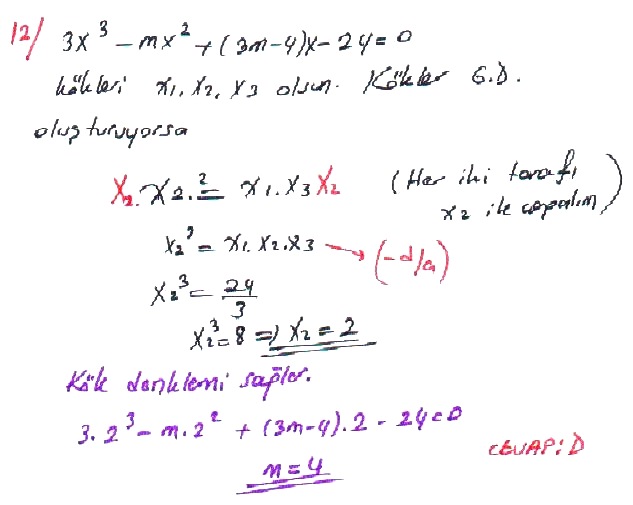 12/ 3x³ - mx² + (3m-4)x - 24 = 0
kökleri x₁, x₂, x₃ olsun. Kökler G.D.
oluşturuyorsa
x₂. x₂.² = x₁. x₃ x₂ (Her iki tarafı
x₂ ile çarpalım)
x₂³ = x₁. x₂. x₃ → (-d/a)
x₂³ = 24/3
x₂³ = 8 ⇒ x₂ = 2
Kök denklemi sağlar.
3. 2³ - m. 2² + (3m-4). 2 - 24 = 0
m = 4
CEVAP: D